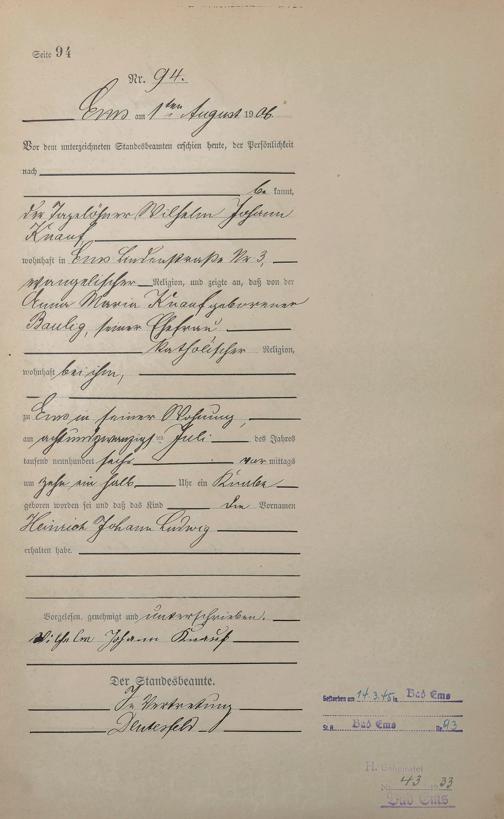 Seite 94
Nr. 94.
Ems am 1ten August 1906.
Vor dem unterzeichneten Standesbeamten erschien heute, der Persönlichkeit
nach
be kannt,
der Tagelöhner Wilhelm Johann
Knauf
wohnhaft in Ems Lindenstraße Nr. 3,
evangelischer Religion, und zeigte an, daß von der
Anna Maria Knauf geborenen
Baulig, seiner Ehefrau
katholischer Religion,
wohnhaft bei ihm,
zu Ems in seiner Wohnung,
am achtundzwanzigsten Juli des Jahres
tausend neunhundert sechs vor mittags
um zehn ein halb Uhr ein Knabe
geboren worden sei und daß das Kind die Vornamen
Heinrich Johann Ludwig
erhalten habe.
Vorgelesen, genehmigt und unterschrieben.
Wilhelm Johann Knauf
Der Standesbeamte.
In Vertretung
Gestorben am 14.3.45 in Bad Ems
St.A. Bad Ems Nr. 93
H. Geheiratet
Nr. 43 1933
Bad Ems